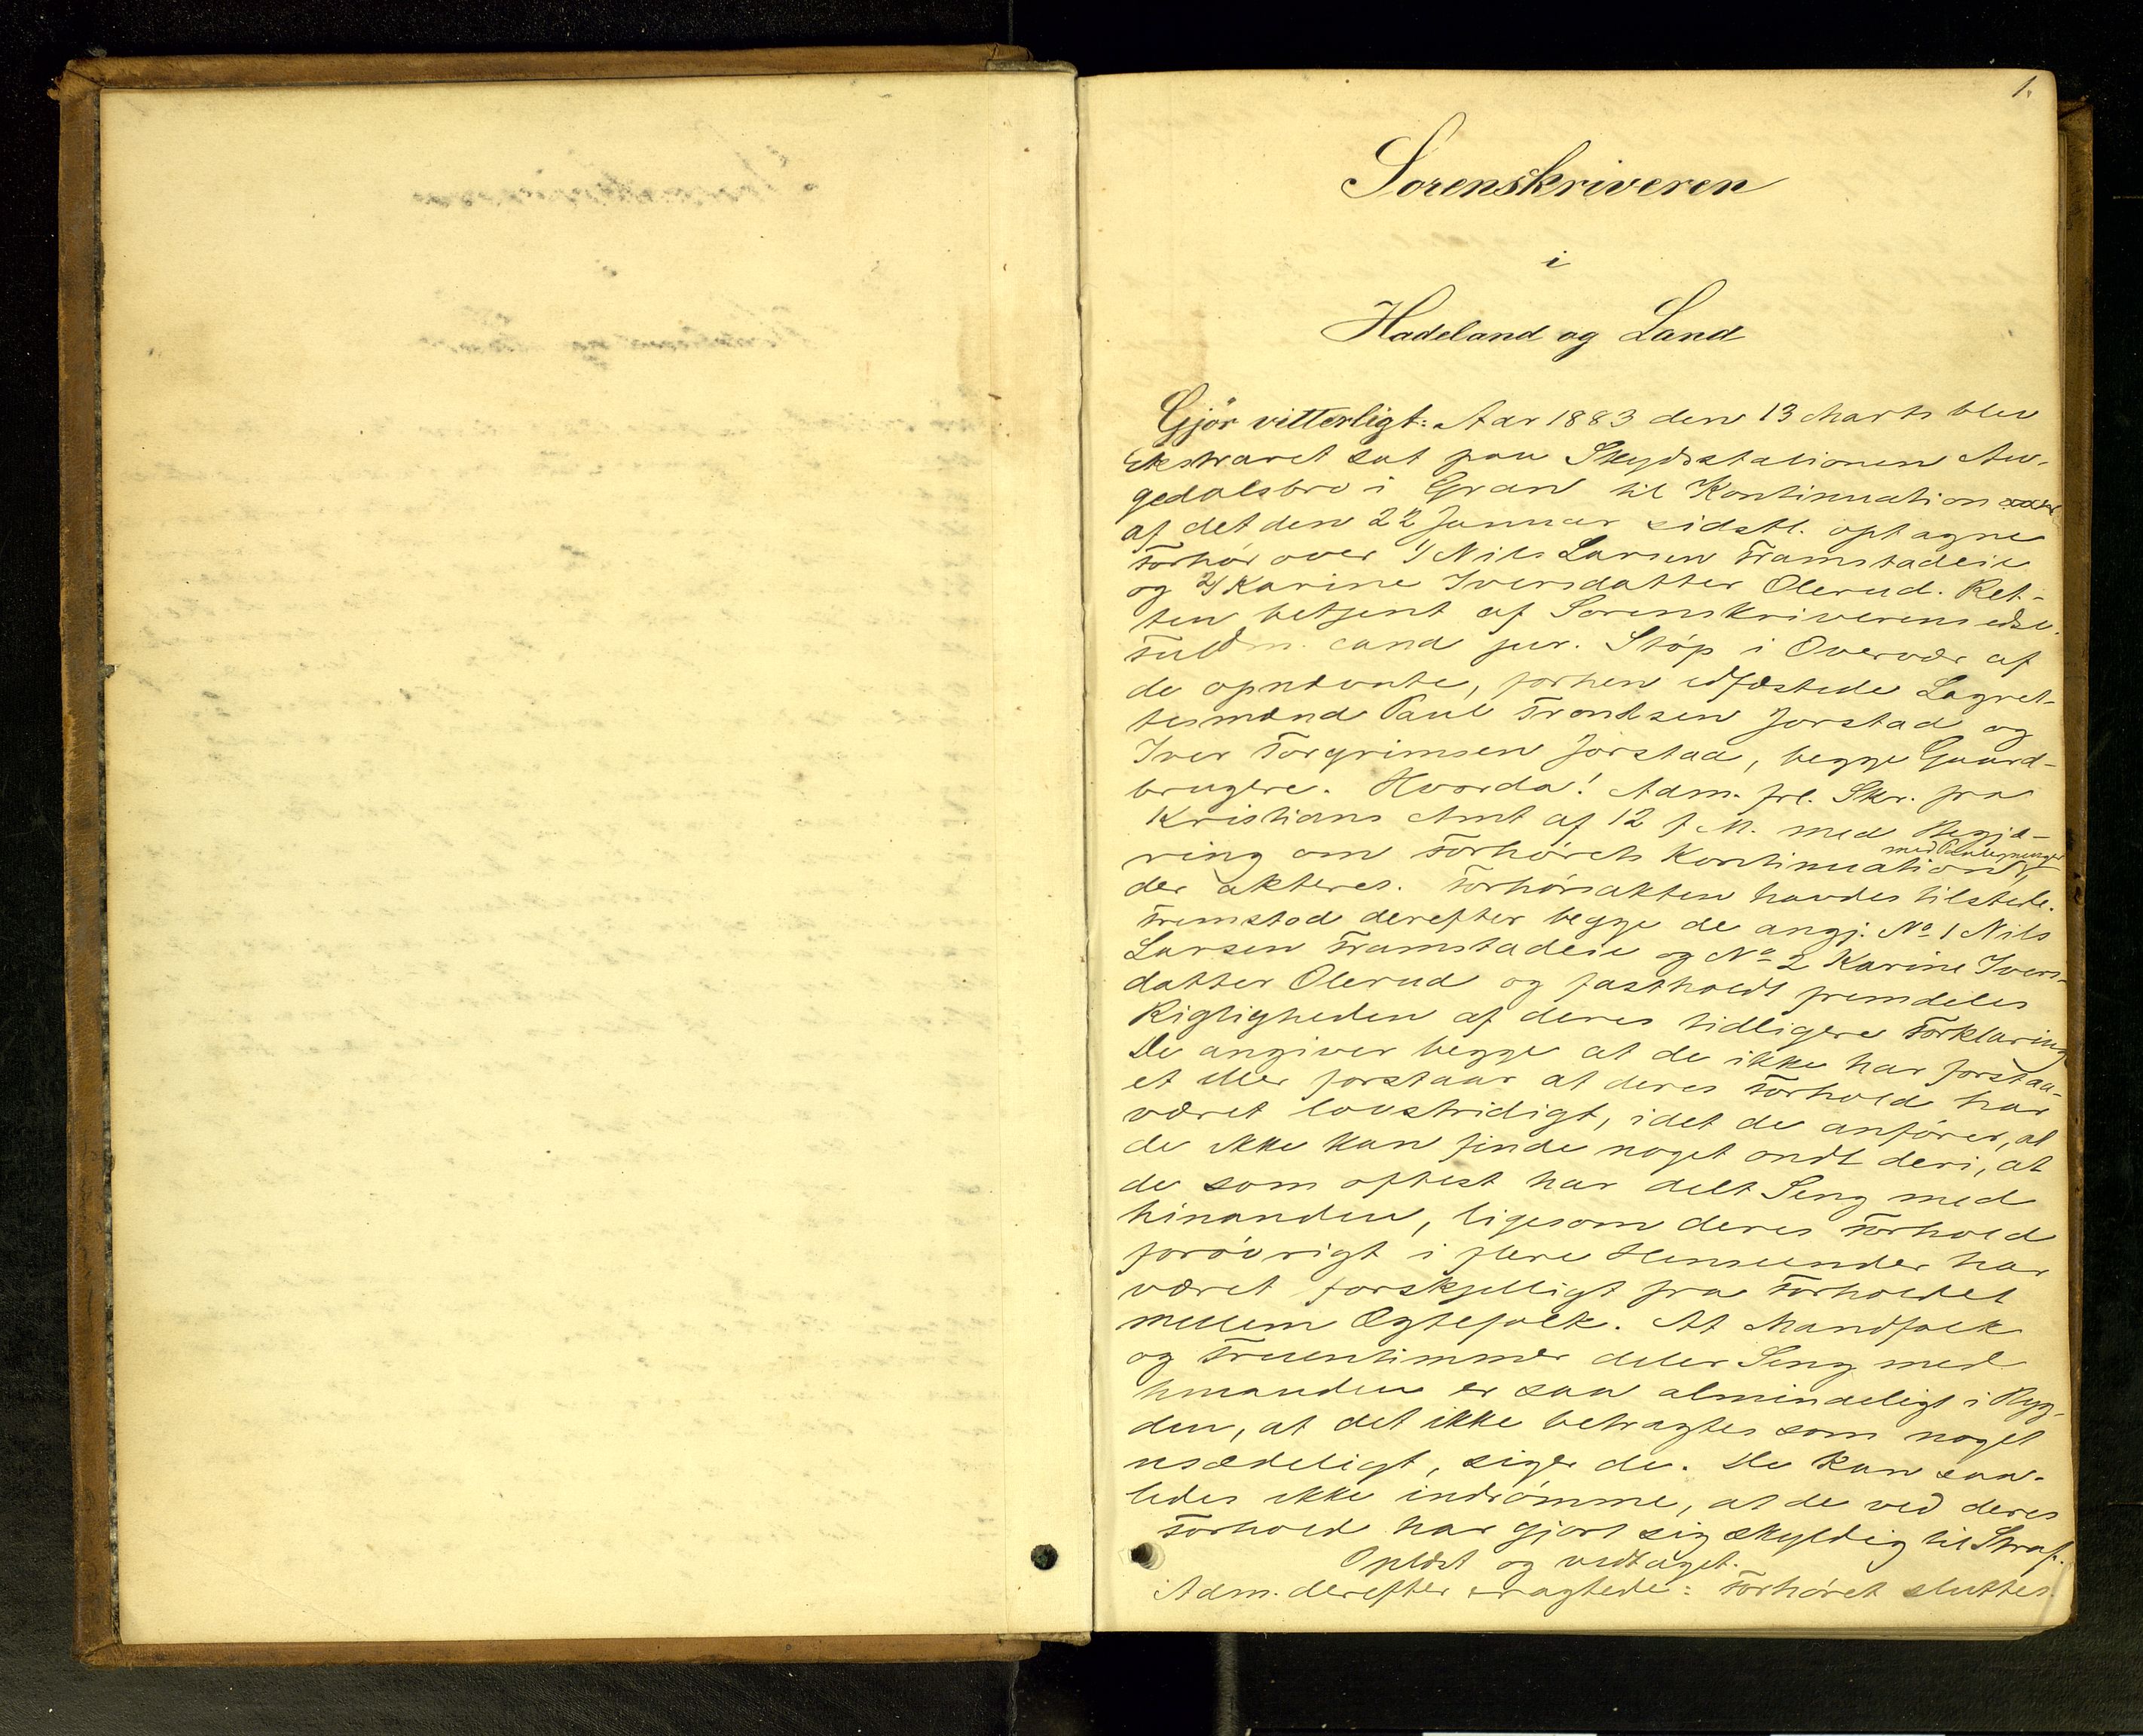 1.
Sorenskriveren
i
Hadeland og Land
Gjör vitterligt: Aar 1883 den 13 Marts blev
Extraret sat paa Skydsstationen Au-
gedalsbro i Gran til Kontinuation
af det den 22 Januar sidstl. optagne
Forhör over 1/ Nils Larsen Framstadeie
og 2/ Karine Iversdatter Olerud. Ret-
ten betjent af Sorenskriverens edsv.
Fuldm. cand jur. Stöp i Overvær af
de opnævnte, forhen edfæstede Lagret-
tesmænd Paul Trondsen Jorstad og
Iver Torgrimsen Jorstad, begge Gaard-
brugere. Hvorda! Adm. frl. Skr. fra
Kristians Amt af 12 f. M. med Begjæ-
ring om Forhörets Kontinuation,
der akteres. Forhörsakten havdes tilstede.
Fremstod derefter begge de angj. No 1 Nils
Larsen Framstadeie og No 2 Karine Ivers-
datter Olerud og fastholdt fremdeles
Rigtigheden af deres tidligere Forklaring
De angiver begge at de ikke har forstaa-
et eller forstaar at deres Forhold har
været lovstridigt, idet de anförer, at
de ikke kan finde noget ondt deri, at
de som oftest har delt Seng med
hinanden, ligesom deres Forhold
forövrigt i flere Henseender har
været forskjelligt fra Forholdet
mellem Ægtefolk. At Mandfolk
og Fruentimmer deler Seng med
hinanden er saa almindeligt i Byg-
den, at det ikke betragtes som noget
usædeligt, siger de. De kan saa-
ledes ikke indrömme, at de ved deres
Forhold har gjort sig skyldig til Straf.
Oplæst og vedtaget.
Adm. derefter eragtede: Forhöret sluttes.